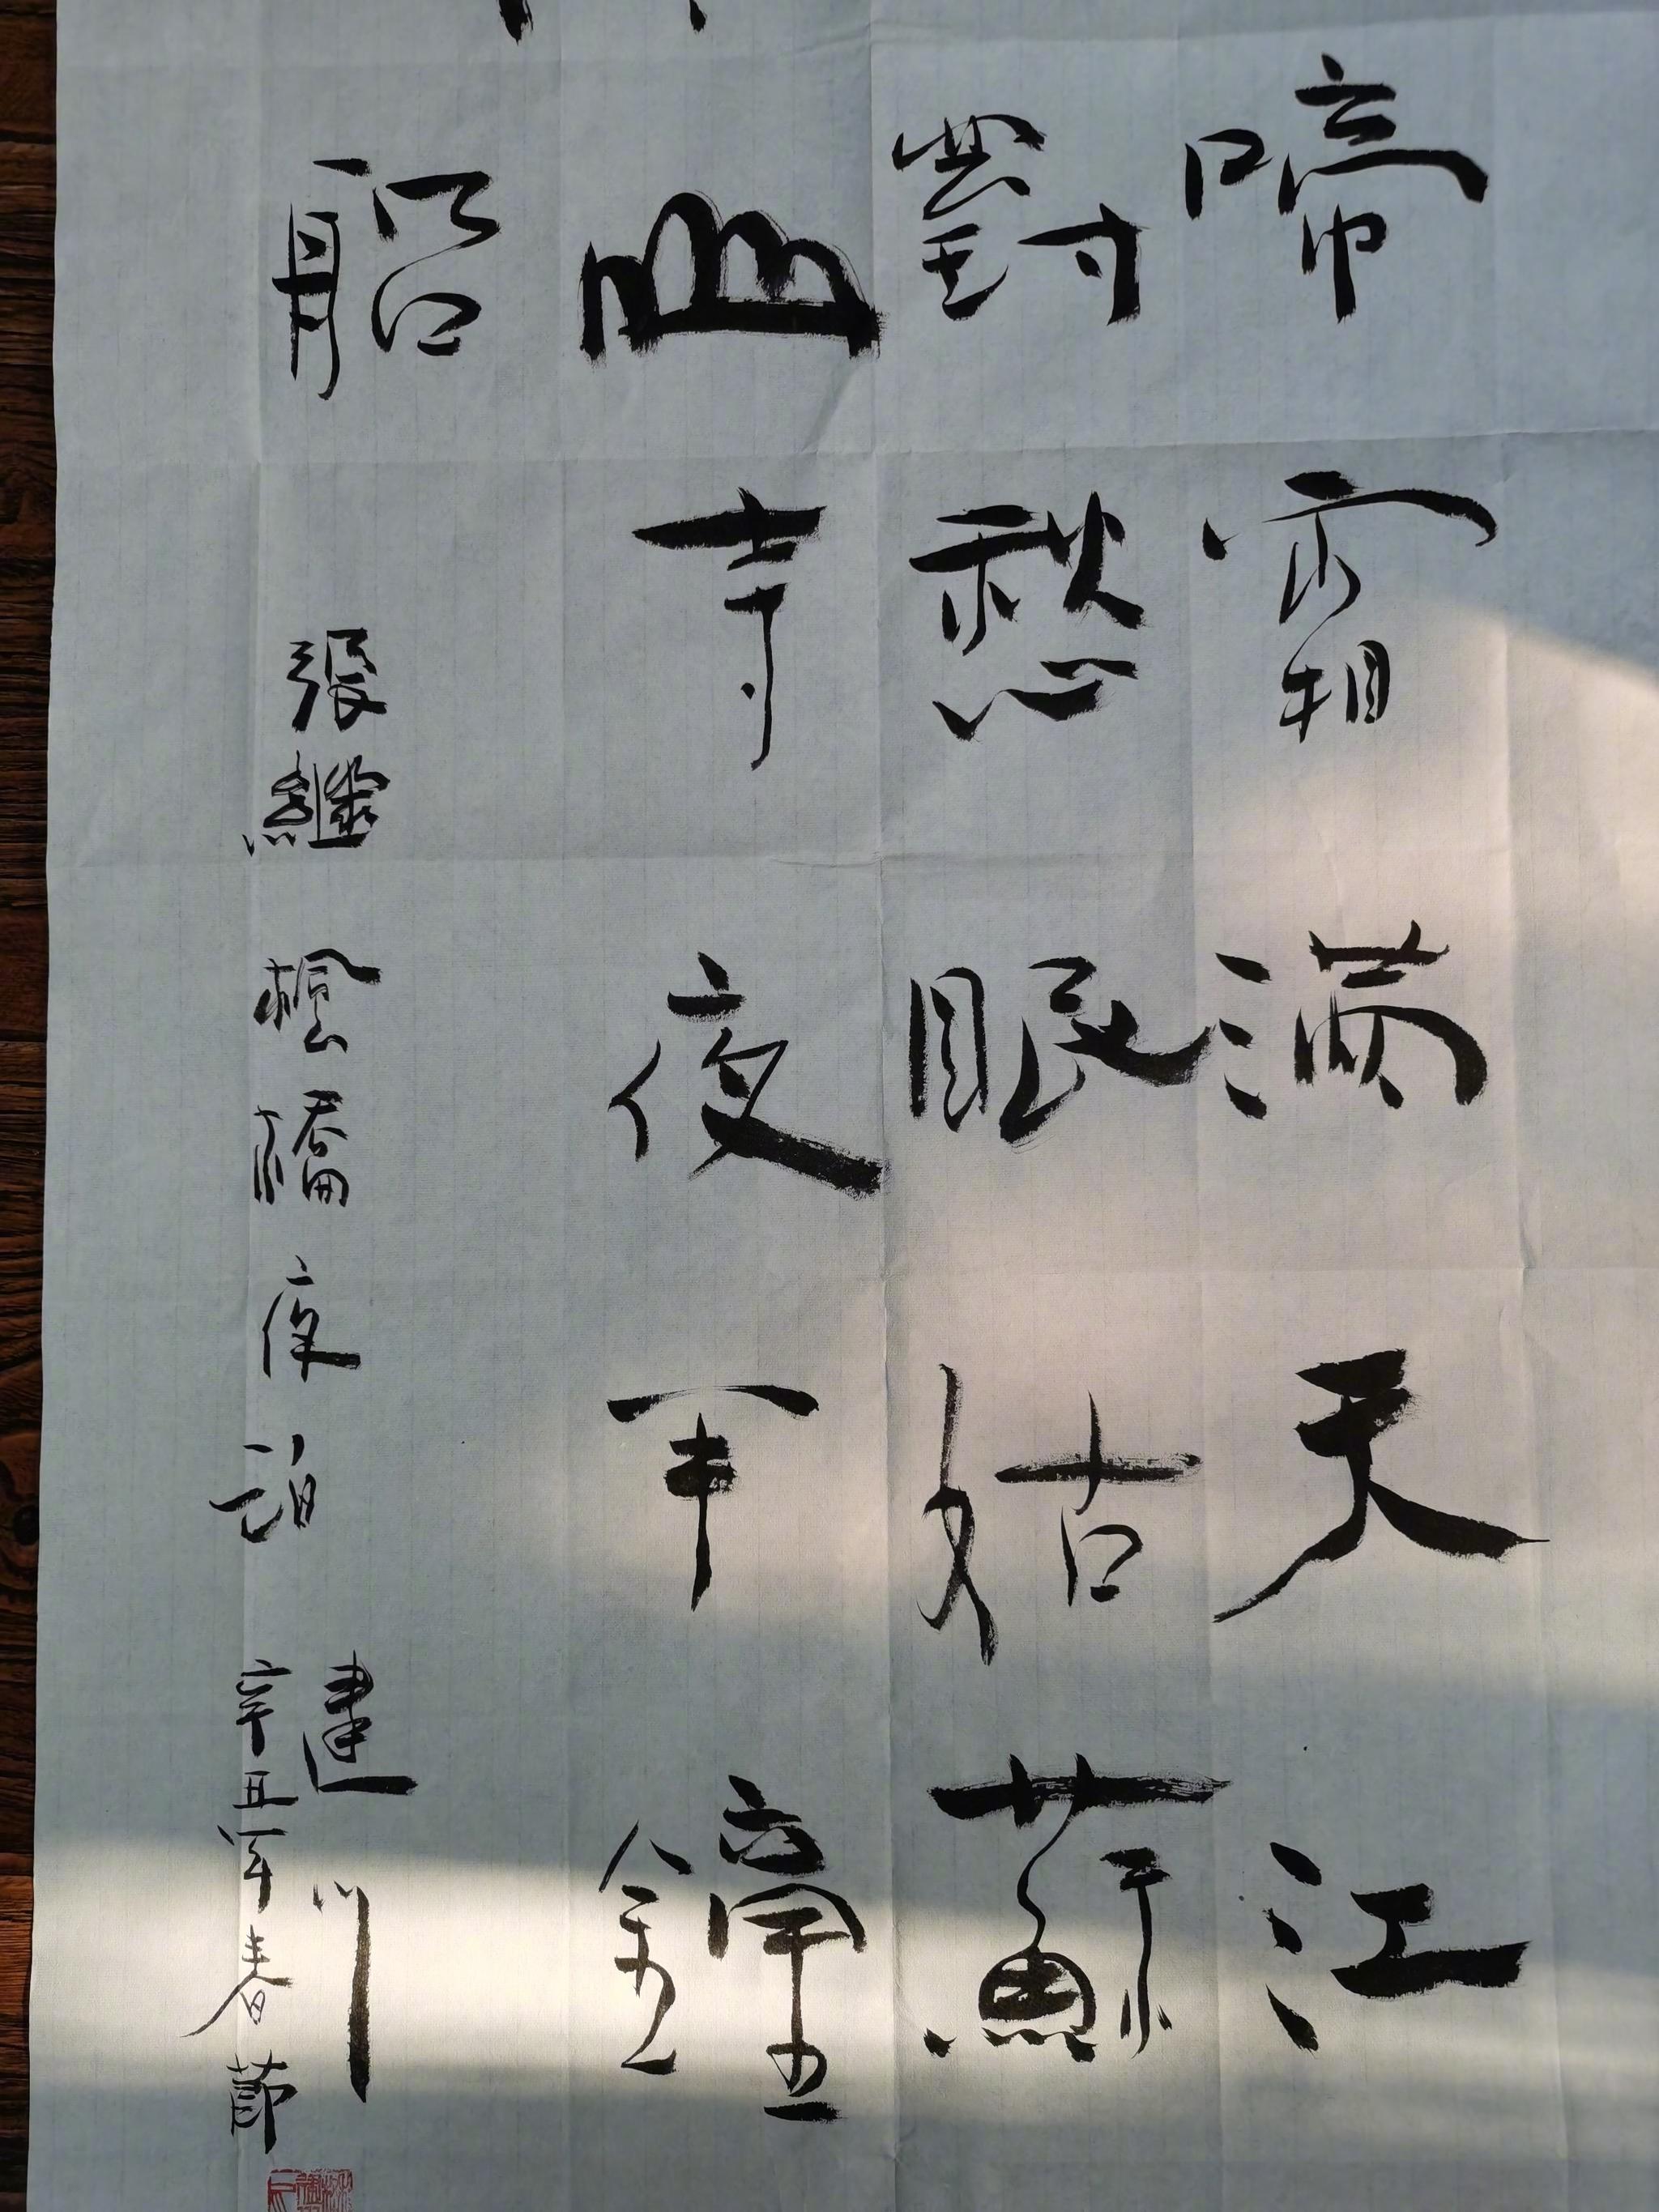 啼霜满天江
對愁眠姑蘇
山寺夜半鐘
船
張繼 楓橋夜泊
建川
辛丑年春節